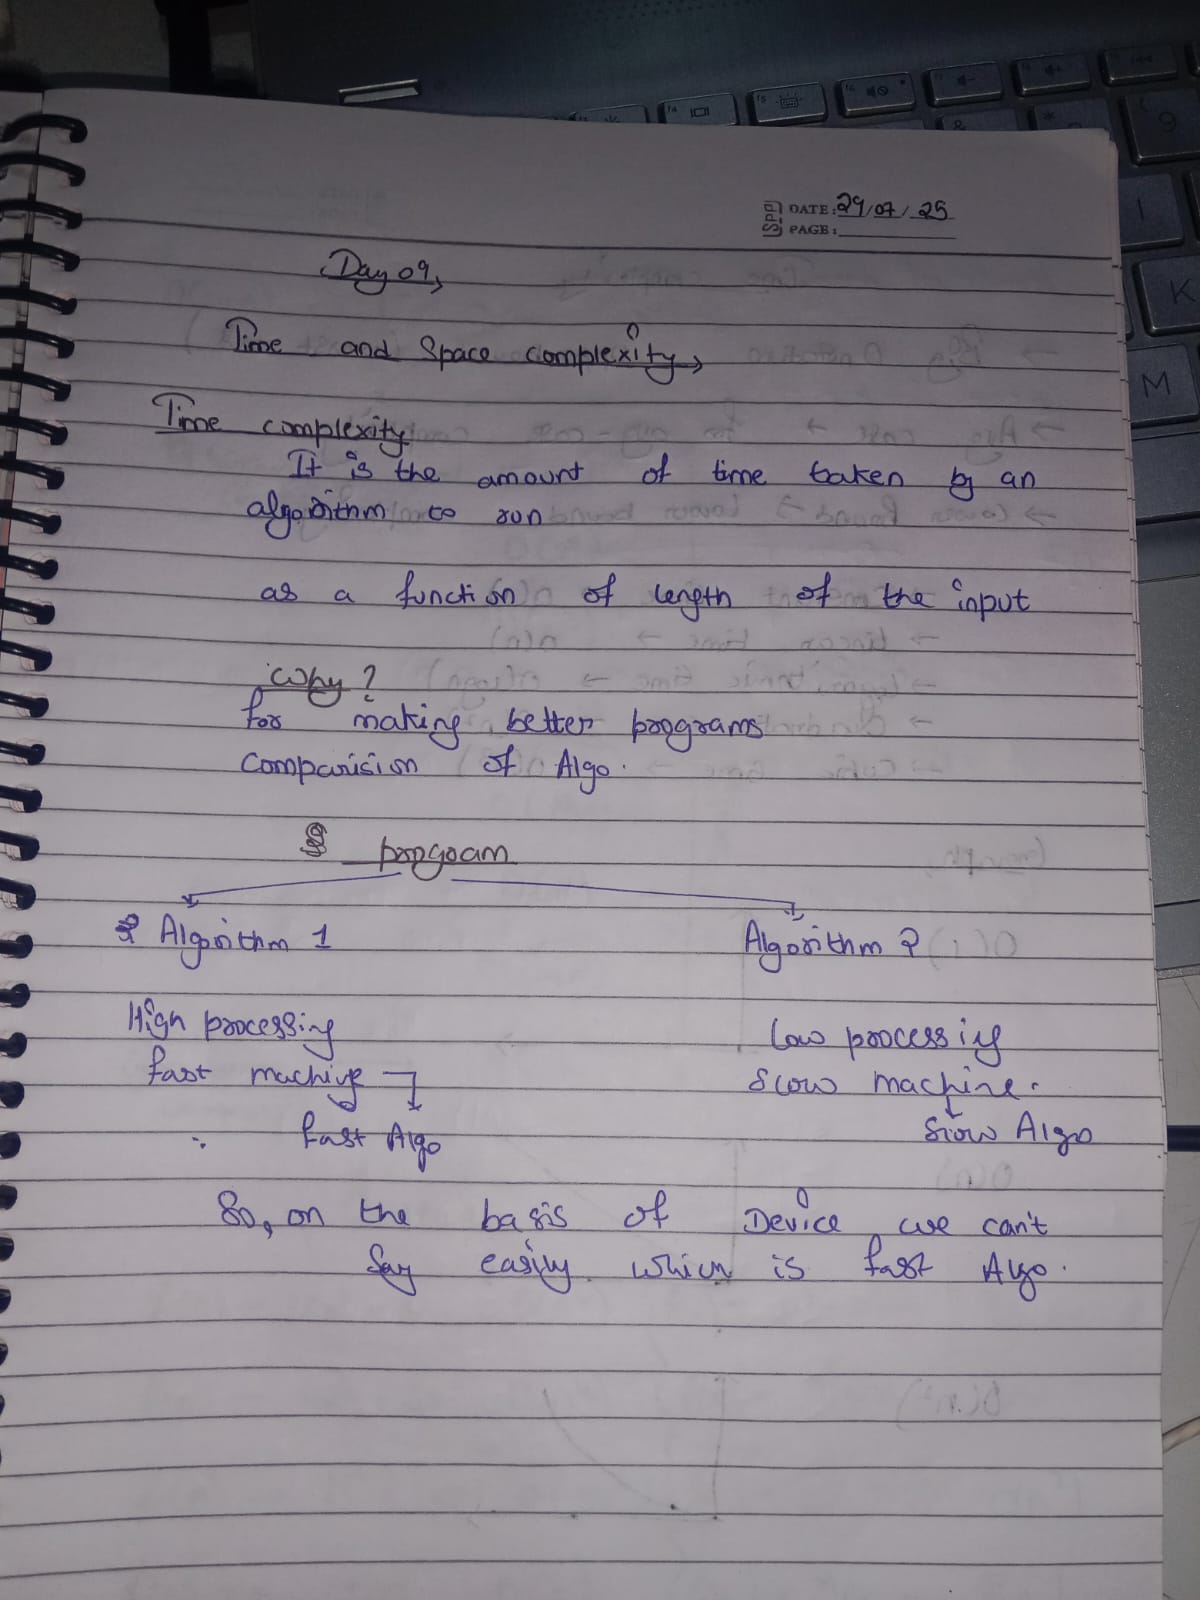 SPD DATE: 29/07/25
PAGE:
Day 09,
Time and Space complexity,
Time complexity
It is the amount of time taken by an
algorithm to run
as a function of length of the input
Why?
for making better programs
Comparision of Algo.
program
Algorithm 1 Algorithm 2
High processing Low processing
fast machine Slow machine.
∴ fast Algo Slow Algo
So, on the basis of Device we can't
Say easily which is fast Algo.